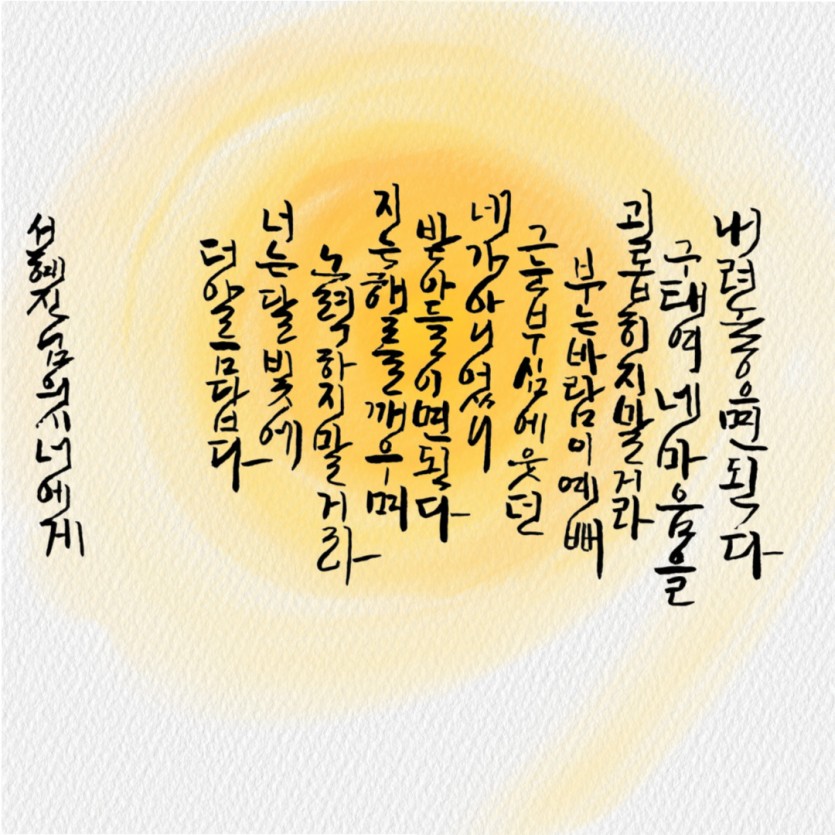 내려놓으면 된다
구태여 네 마음을
괴롭히지 말거라
부는 바람이 예뻐
그 눈부심에 웃던
네가 아니었니
받아들이면 된다
지는 해를 깨우며
노력하지 말거라
너는 달빛에
더 아름답다
서혜진 님의 시 너에게